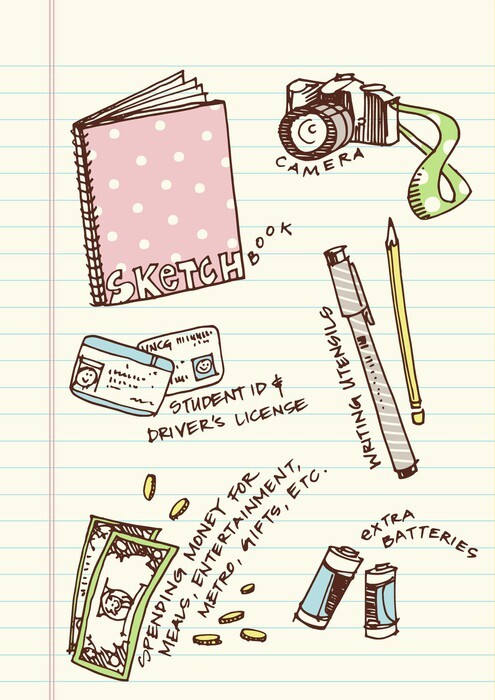 CAMERA
SKETCH BOOK
WRITING UTENSILS
UNCG
STUDENT ID &
DRIVER'S LICENSE
SPENDING MONEY FOR
MEALS, ENTERTAINMENT,
METRO, GIFTS, ETC.
EXTRA
BATTERIES